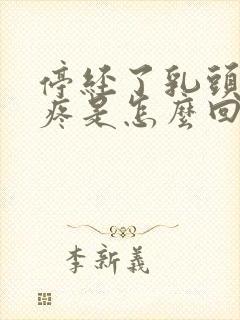 停经了乳頭
疼是怎麼回
李新義